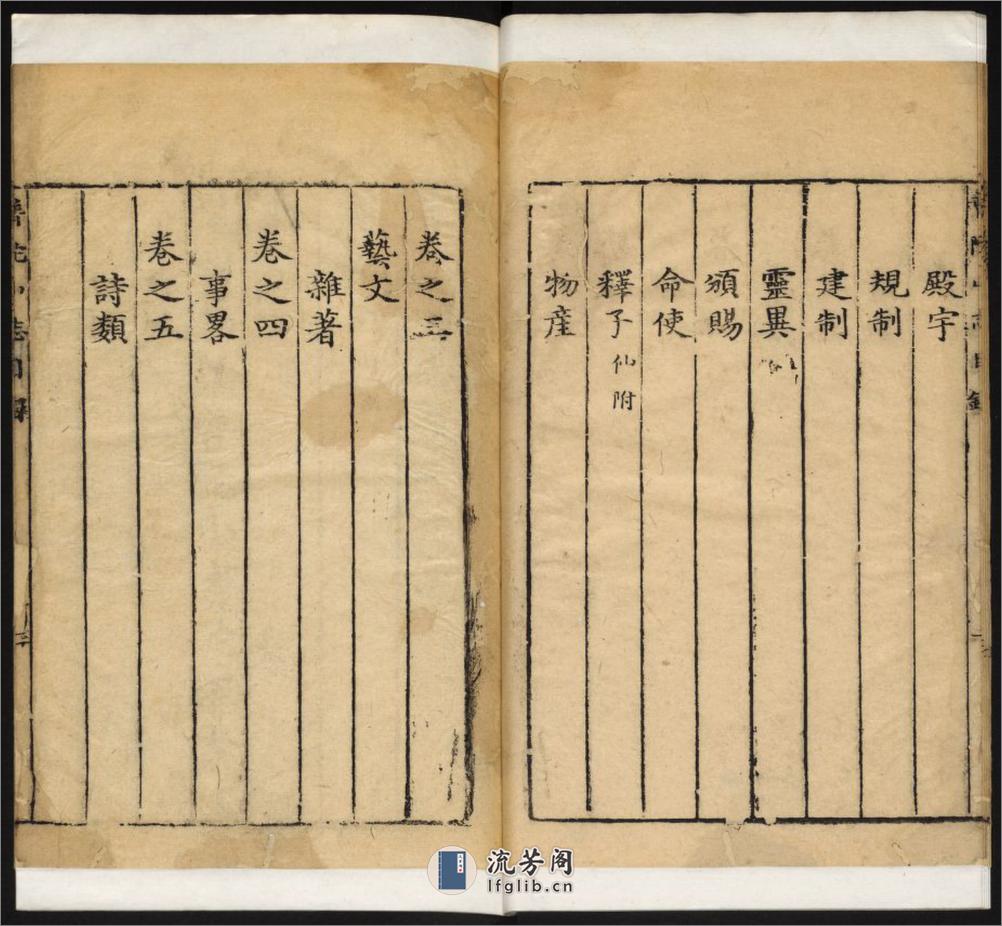 殿宇
規制
建制
靈異
頒賜
命使
釋子仙附
物産
卷之三
藝文
雜著
卷之四
事畧
卷之五
詩類
普陀山志目録
流芳阁
lfglib.cn